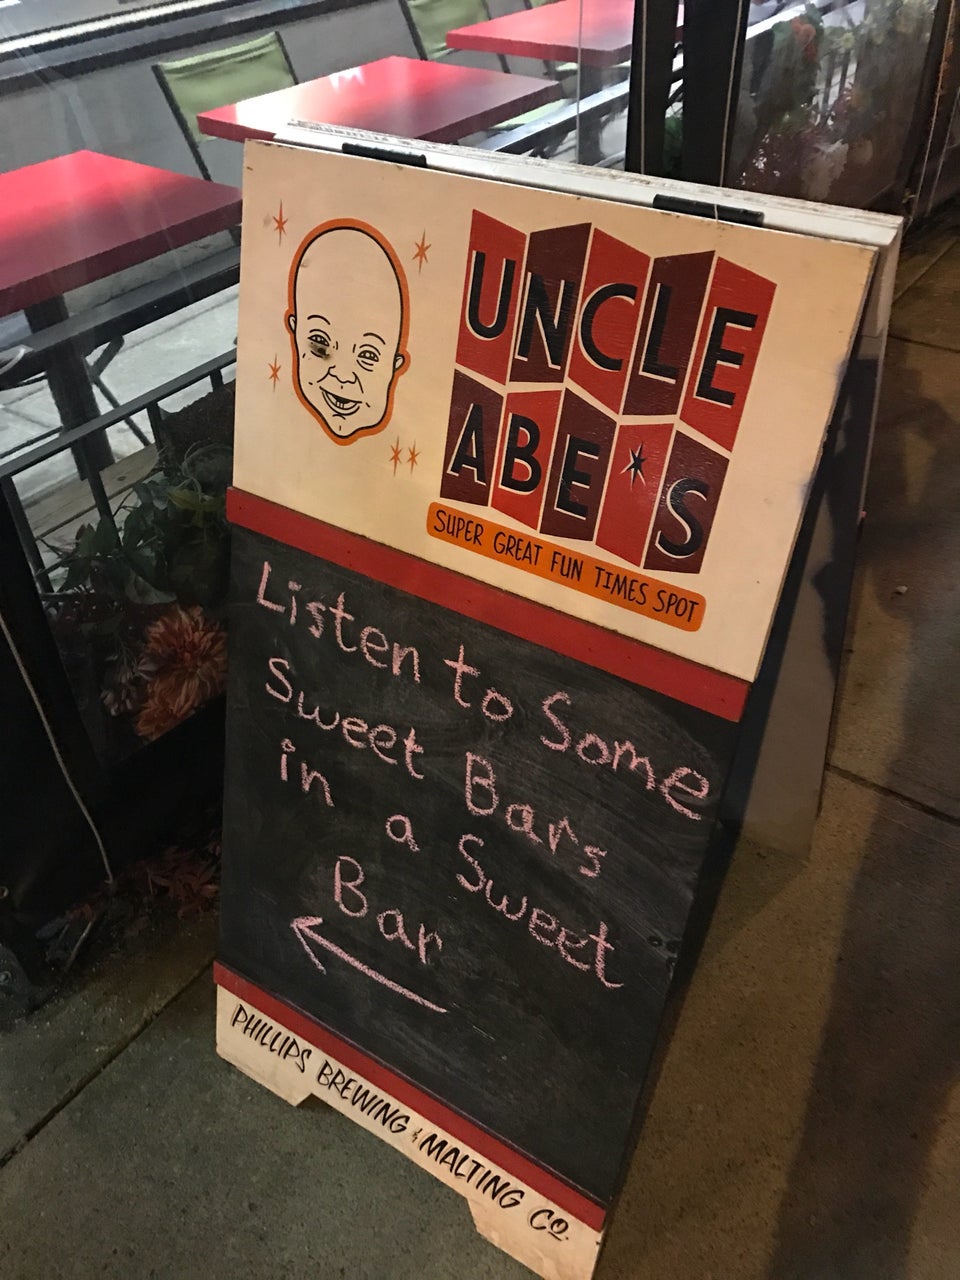 UNCLE
ABE'S
SUPER GREAT FUN TIMES SPOT
Listen to Some
Sweet Bars
in a Sweet
Bar
PHILLIPS BREWING & MALTING CO.